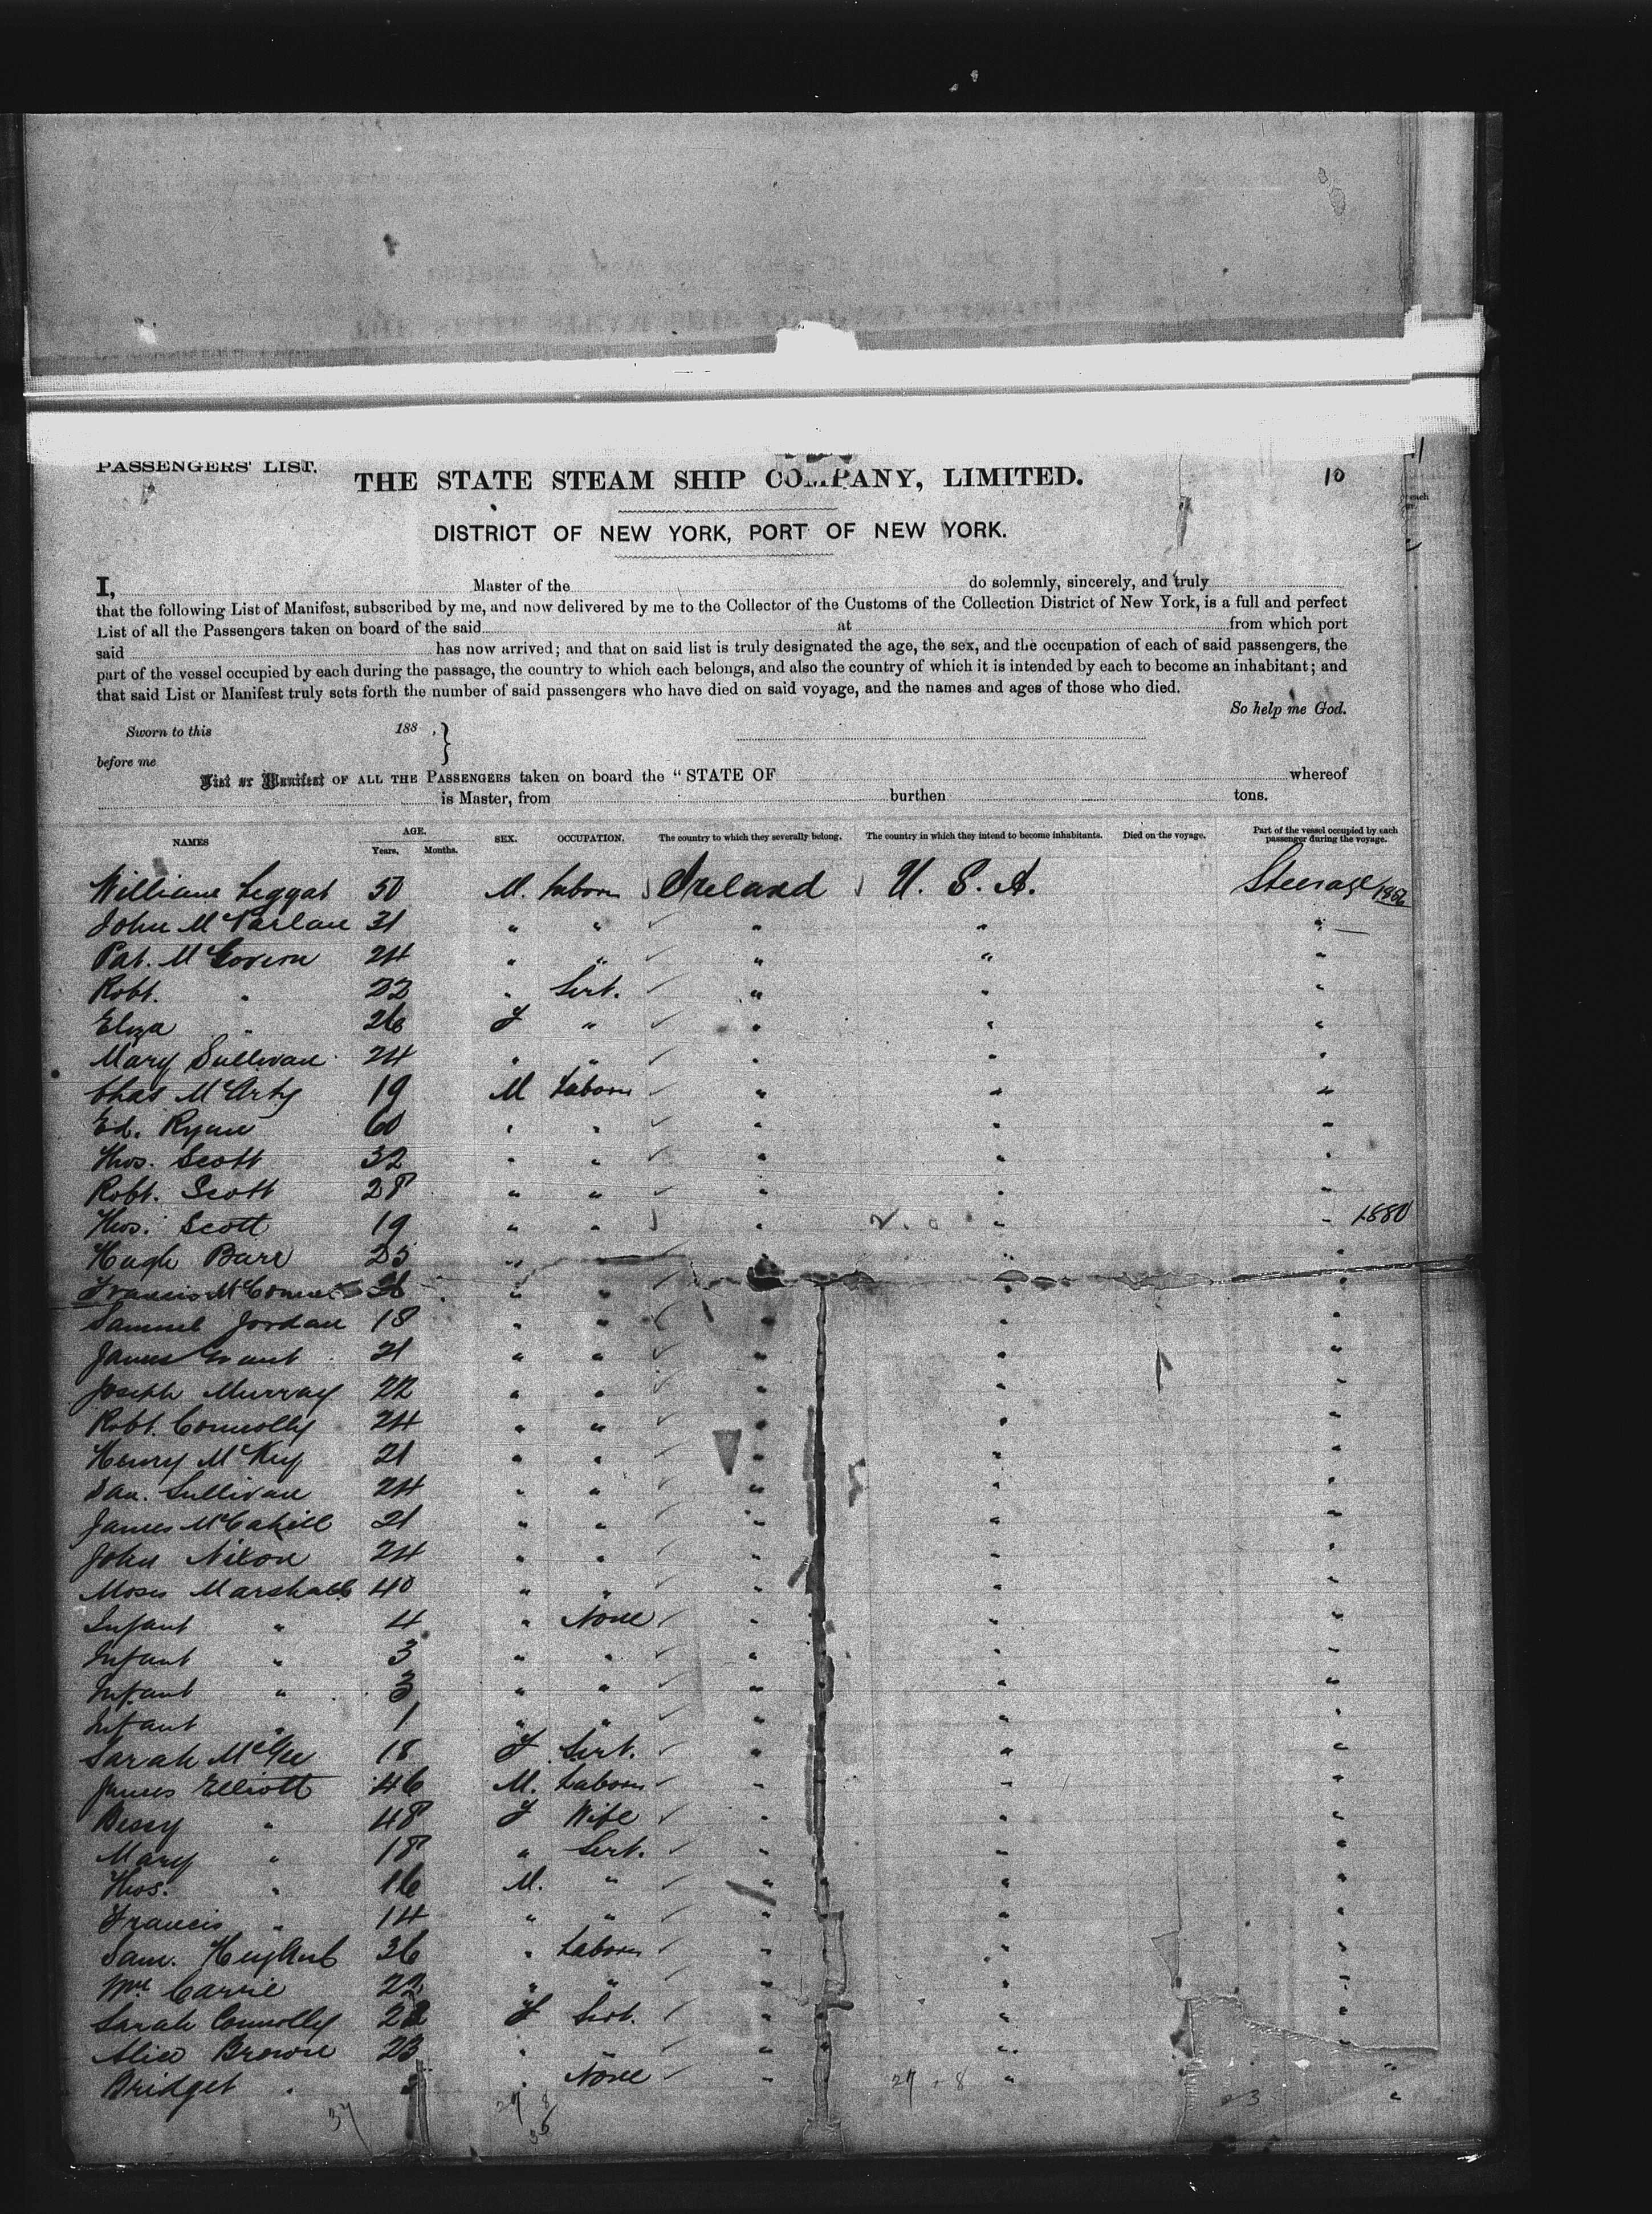 PASSENGERS' LIST.
10
THE STATE STEAM SHIP COMPANY, LIMITED.
DISTRICT OF NEW YORK, PORT OF NEW YORK.
I, Master of the do solemnly, sincerely, and truly
that the following List of Manifest, subscribed by me, and now delivered by me to the Collector of the Customs of the Collection District of New York, is a full and perfect
List of all the Passengers taken on board of the said at from which port
said has now arrived; and that on said list is truly designated the age, the sex, and the occupation of each of said passengers, the
part of the vessel occupied by each during the passage, the country to which each belongs, and also the country of which it is intended by each to become an inhabitant; and
that said List or Manifest truly sets forth the number of said passengers who have died on said voyage, and the names and ages of those who died.
So help me God.
Sworn to this 188 , }
before me
List or Manifest OF ALL THE PASSENGERS taken on board the "STATE OF whereof
is Master, from burthen tons.
NAMES AGE. Years. Months. SEX. OCCUPATION. The country to which they severally belong. The country in which they intend to become inhabitants. Died on the voyage. Part of the vessel occupied by each passenger during the voyage.
William Leggat 50 M. Labour Ireland U. S. A. Steerage
John McParlan 31 " " " " "
Pat. McGovern 24 " " " " "
Robt. " 22 " Servt. " " "
Eliza " 26 F " " " "
Mary Sullivan 24 " " " " "
Chas McArty 19 M Labour " " "
Ed. Ryan 60 " " " " "
Thos. Scott 32 " " " " "
Robt. Scott 28 " " " " "
Thos. Scott 19 " " " " " 1880
Hugh Barr 25 " " " "
Francis McConnel 36 " " " "
Samuel Jordan 18 " " " " "
James Grant 21 " " " " "
Joseph Murray 22 " " " " "
Robt. Connolly 24 " " " " "
Henry McKey 21 " " " " "
Dan. Sullivan 24 " " " " "
James McCahill 21 " " " " "
John Nixon 24 " " " " "
Moses Marshall 40 " " " " "
Infant " 4 " None " " "
Infant " 3 " " " " "
Infant " 3 " " " " "
Infant " 1 " " " " "
Sarah McGee 18 F Servt. " " "
James Elliott 46 M. Labour " " "
Bessy " 48 F Wife " " "
Mary " 18 " Servt. " " "
Thos. " 16 M. " " " "
Francis " 14 " " " " "
Sam. 36 " Labour " " "
Wm. Carrie 22 " " " " "
Sarah Connolly 22 F Servt. " " "
Alice Brown 23 " " " " "
Bridget " " None " " "
37 29 8 29 8
36